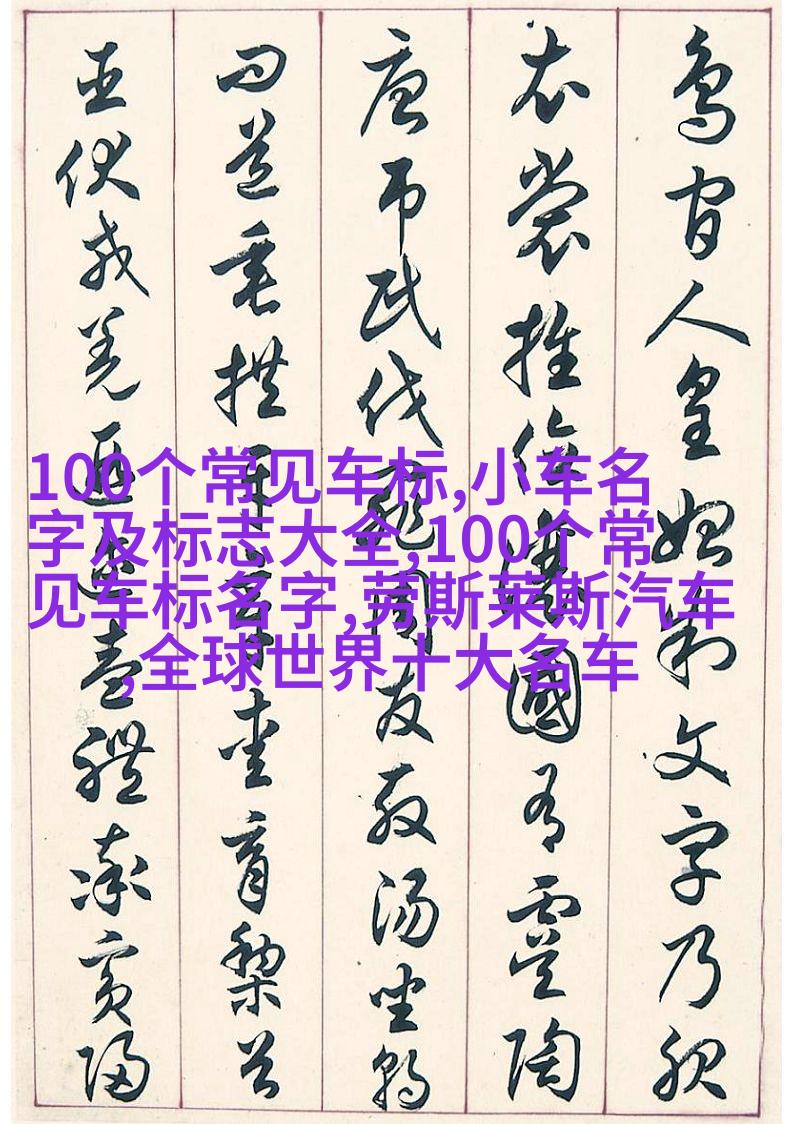 鳥官人皇始制文字乃服
衣裳推位讓國有虞陶
唐弔民伐罪周發殷湯坐朝
問道垂拱平章愛育黎首
臣伏戎羌遐邇壹體率賓歸
100个常见车标,小车名
字及标志大全,100个常
见车标名字,劳斯莱斯汽车
,全球世界十大名车